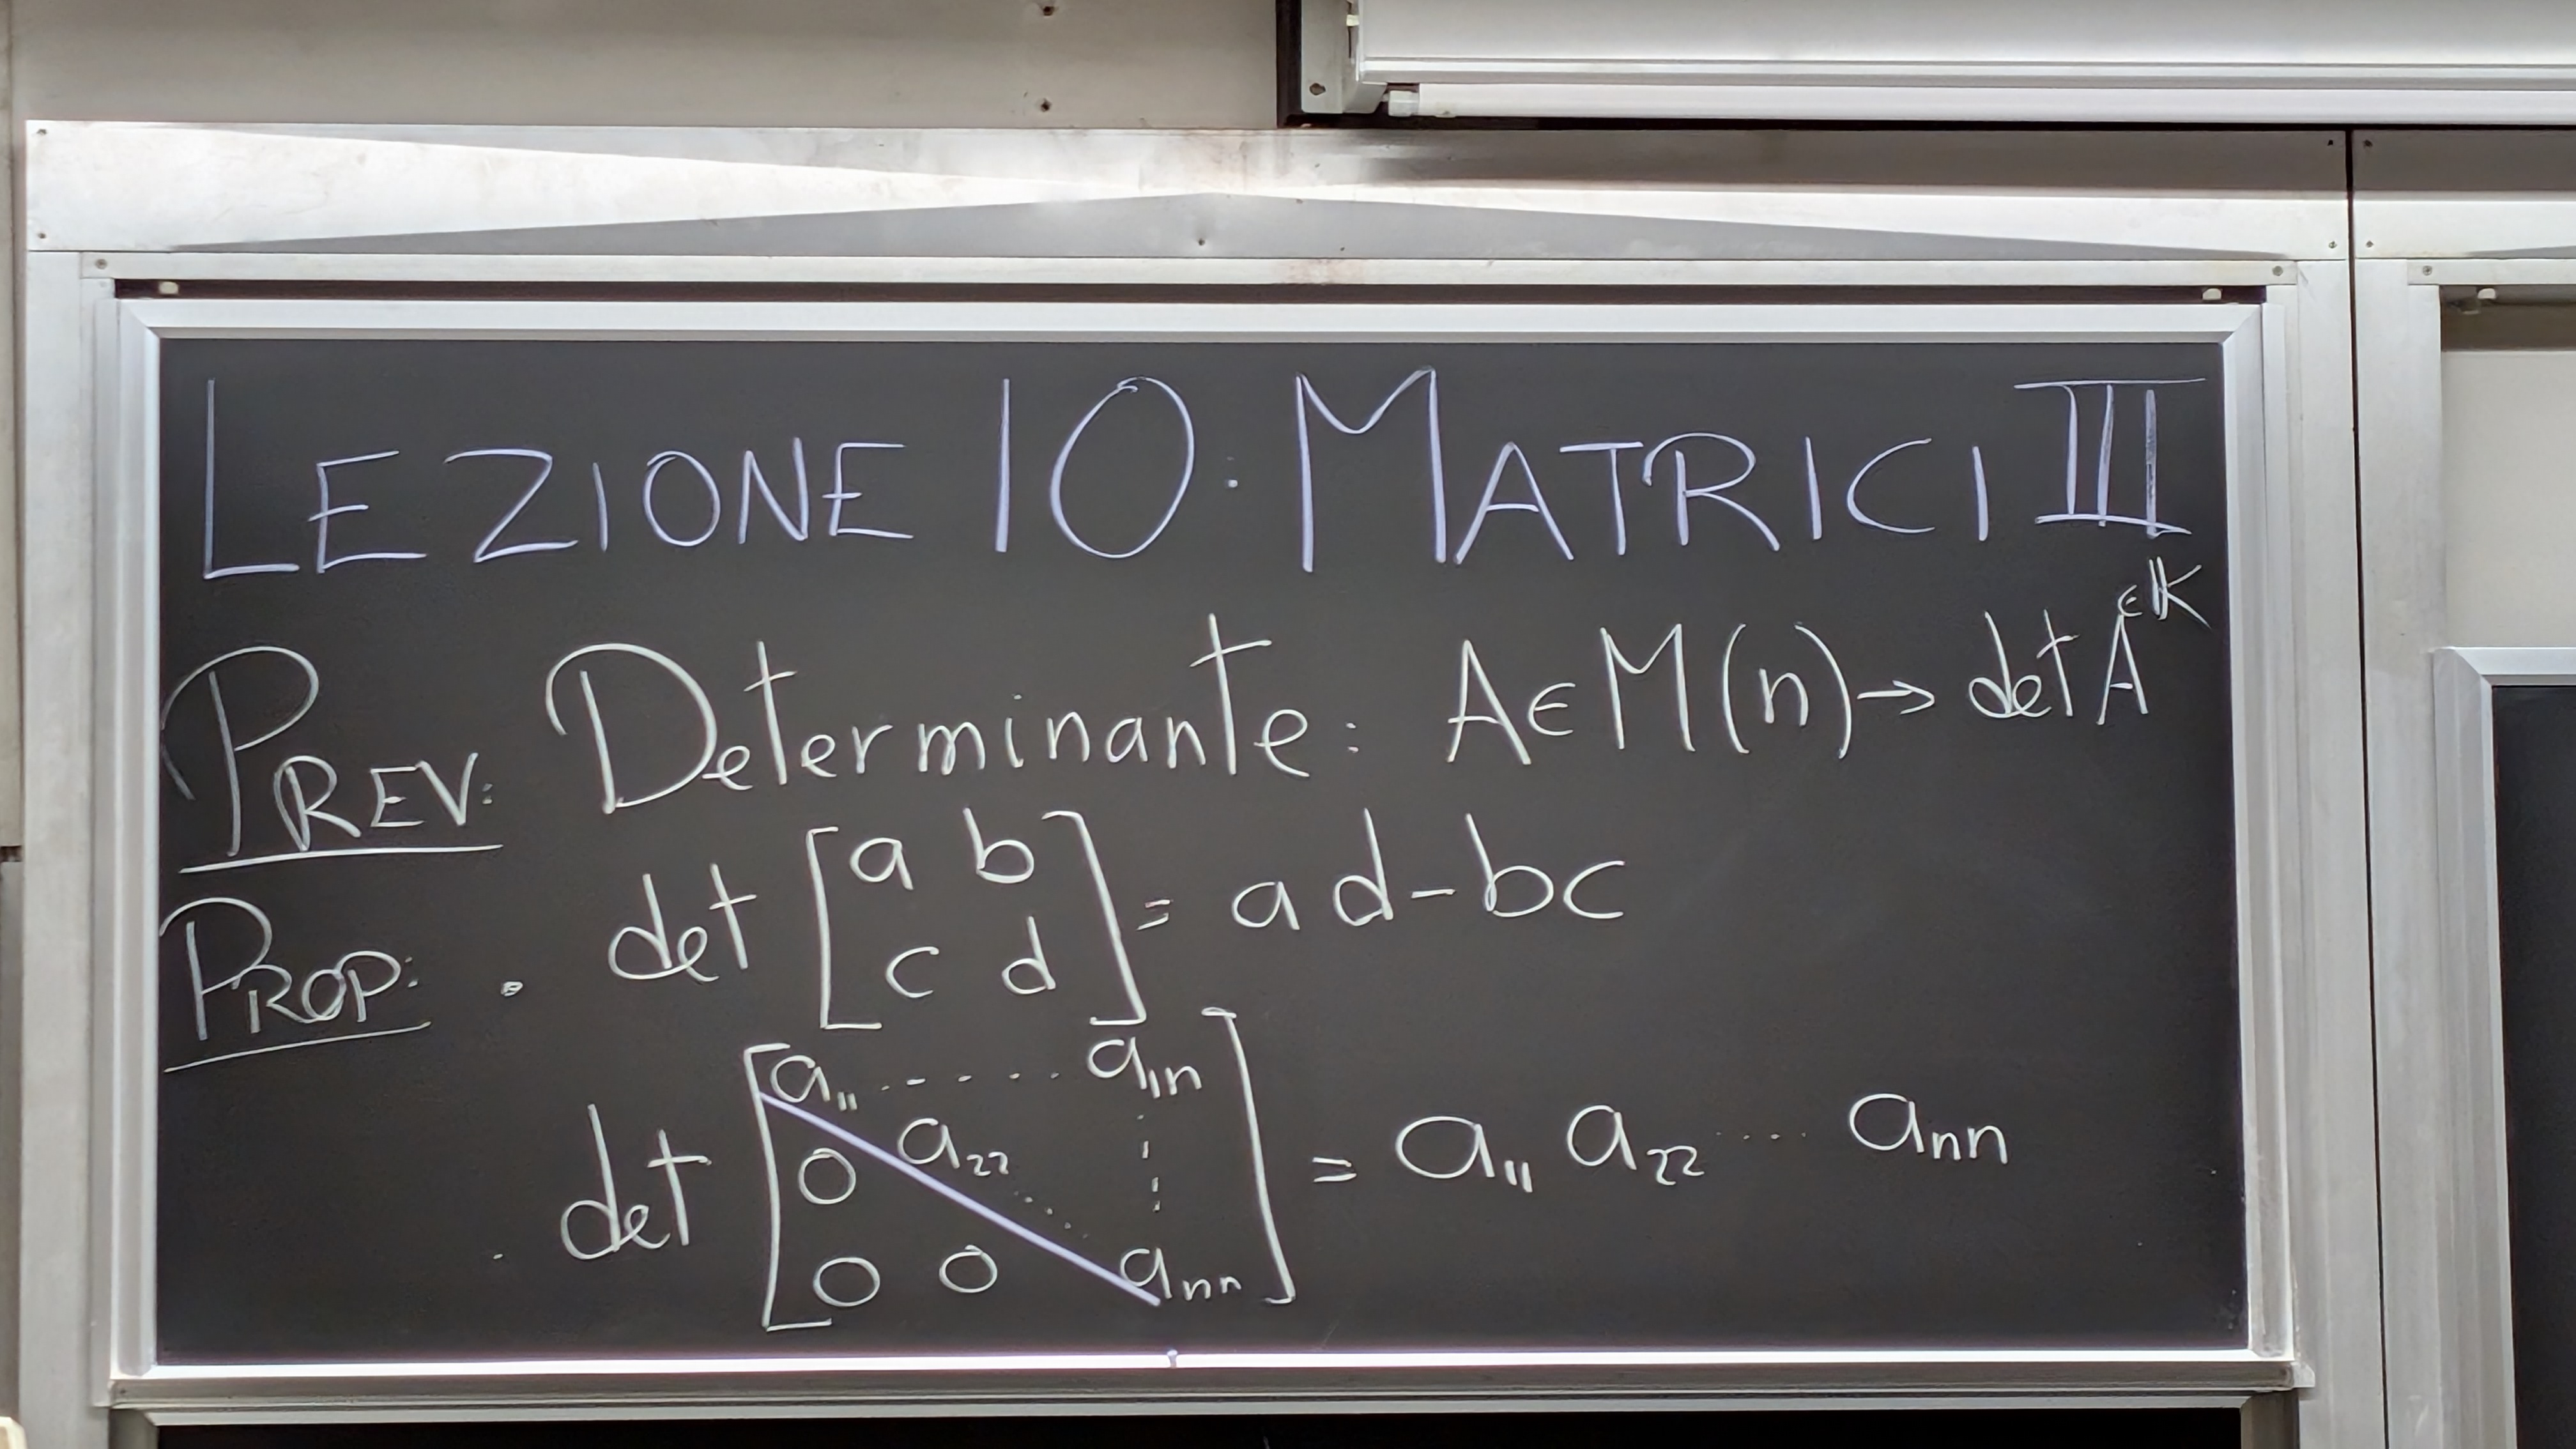 LEZIONE 10: MATRICI III
PREV: Determinante: A∈M(n)→ det A ∈𝕂
PROP: . det [a b
c d] = ad-bc
. det [a₁₁ ..... a₁ₙ
0 a₂₂ ⋱ ⋮
0 0 aₙₙ] = a₁₁ a₂₂ .... aₙₙ